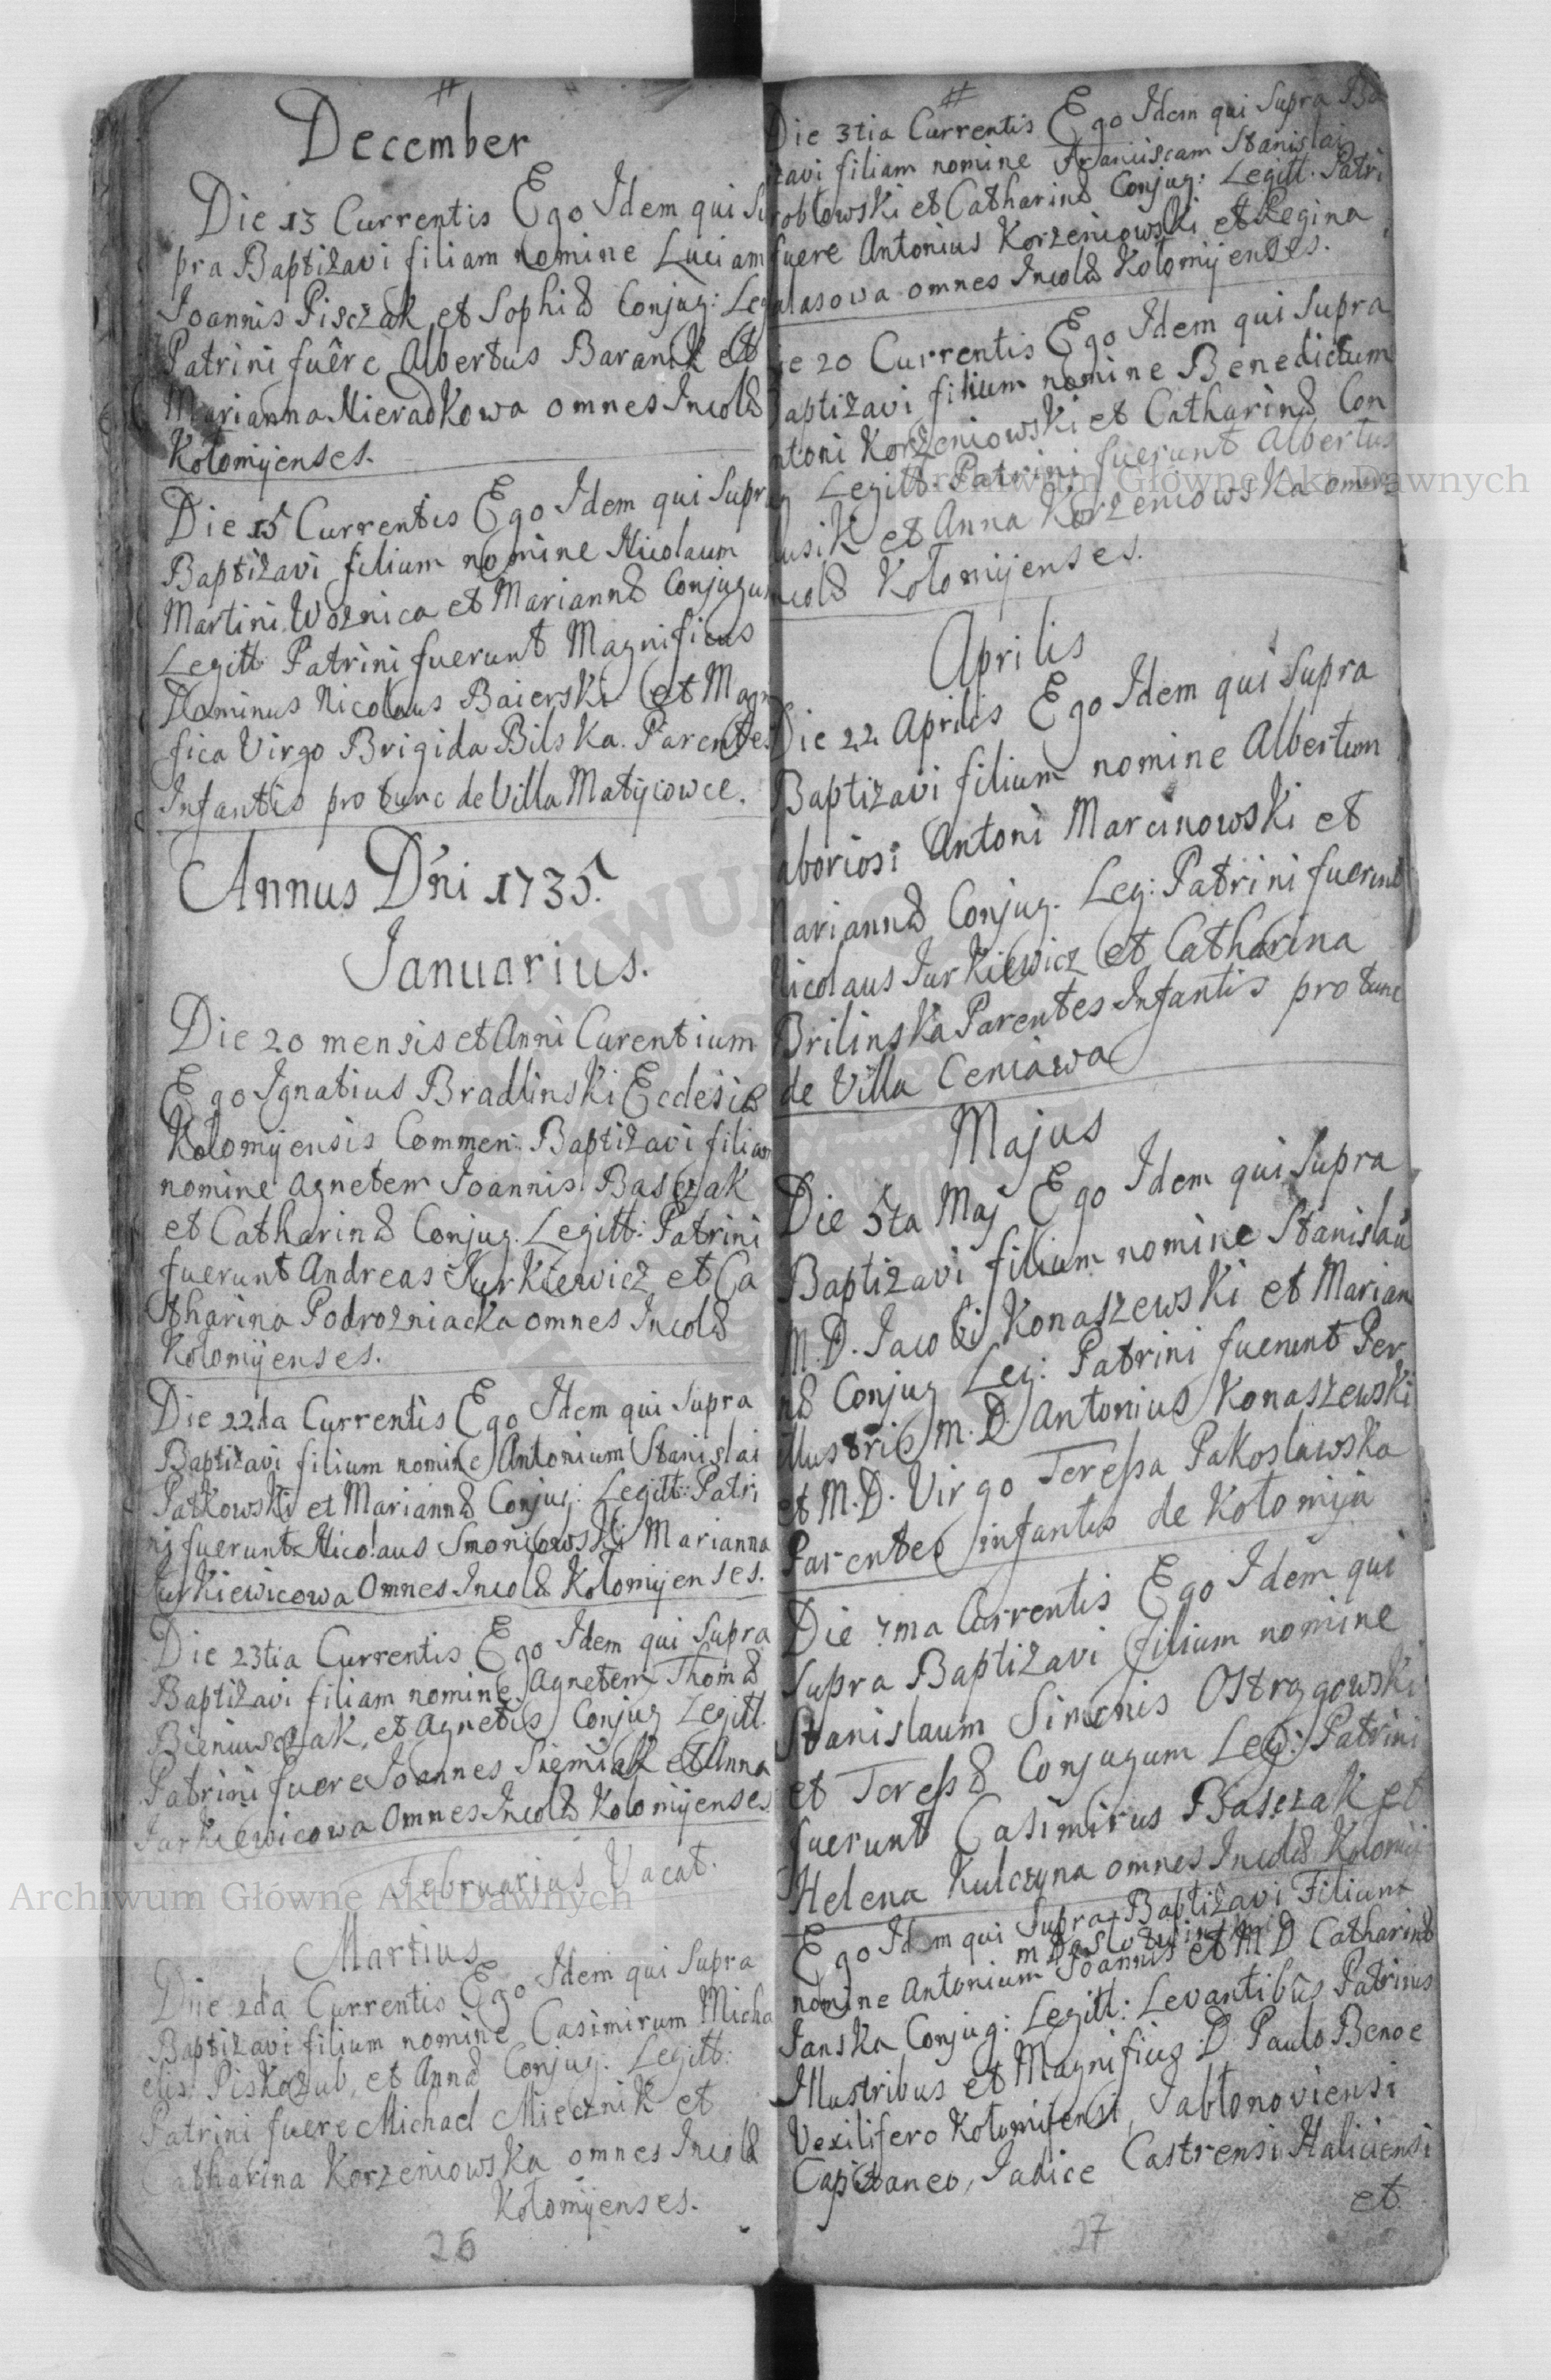 December
Die 13 Currentis Ego Idem qui Su
pra Baptizavi filiam nomine Luciam
Joannis Pisczak et Sophiæ Conjug: Leg
Patrini fuêre Albertus Baranik et
Marianna Nieradkowa omnes Incolæ
Kołomÿenses.
Die 15 Currentis Ego Idem qui Supra
Baptizavi filium nomine Nicolaum
Martini Woznica et Mariannæ Conjugum
Legitt: Patrini fuerunt Magnificus
Dominus Nicolaus Baierski et Magni
fica Virgo Brigida Bilska. Parentes
Infantis pro tunc de Villa Matÿiowce.
Annus Dñi 1735.
Januarius.
Die 20 mensis et Anni Curentium
Ego Ignatius Bradlinski Ecclesiæ
Kołomÿensis Commen: Baptizavi filiam
nomine Agnetem Joannis Basczak
et Catharinæ Conjug. Legitt: Patrini
fuerunt Andreas Jurkiewicz et Ca
tharina Podrozniacka omnes Incolæ
Kołomÿenses.
Die 22da Currentis Ego Idem qui Supra
Baptizavi filium nomine Antonium Stanislai
Patkowski et Mariannæ Conjug: Legitt: Patri
ni fuerunt Nicolaus Smoniowski Marianna
Jurkiewicowa Omnes Incolæ Kołomÿenses.
Die 23tia Currentis Ego Idem qui Supra
Baptizavi filiam nomine Agnetem Thomæ
Bieniusczak, et Agnetis Conjug Legitt.
Patrini fuere Joannes Siemiak et Anna
Jurkiewicowa Omnes Incolæ Kołomÿenses
Februarius Vacat.
Martius
Die 2da Currentis Ego Idem qui Supra
Baptizavi filium nomine Casimirum Micha
elis Piskozub, et Annæ Conjug: Legitt:
Patrini fuere Michael Miecznik et
Catharina Korzeniowska omnes Incolæ
Kołomÿenses.
26
Die 3tia Currentis Ego Idem qui Supra Ba
izavi filiam nomine Franciscam Stanislai
obłowski et Catharinæ Conjug: Legitt. Patri
fuere Antonius Korzeniowski et Regina
alasowa omnes Incolæ Kołomÿenses.
ie 20 Currentis Ego Idem qui Supra
Baptizavi filium nomine Benedictum
ntoni Korzeniowski et Catharinæ Con
g Legitt: Patrini fuerunt Albertus
usik et Anna Korzeniowska omnes
ncolæ Kołomÿenses.
Aprilis
Die 22 Aprilis Ego Idem qui Supra
Baptizavi filium nomine Albertum
aboriosi Antoni Marcinowski et
Mariannæ Conjug. Leg: Patrini fuerunt
Nicolaus Jurkiewicz et Catharina
Brilinska Parentes Infantis pro tunc
de Villa Ceniawa
Majus
Die 5ta Maj Ego Idem qui Supra
Baptizavi filium nomine Stanislaũ
M. D. Jacobi Konaszewski et Marian
næ Conjug Leg: Patrini fuerunt Per
illustris M. D. Antonius Konaszewski
et M. D. Virgo Teressa Pakoslawska
Parentes infantis de Kołomija
Die 7ma Currentis Ego Idem qui
Supra Baptizavi filium nomine
Stanislaum Simonis Ostrzgowski
et Teressæ Conjugum Leg: Patrini
fuerunt Casimirus Basczak et
Helena Kulczyna omnes Incolæ Kołomij
Ego Idem qui Supra Baptizavi Filium
nomine Antonium Joannis et M D Catharinæ
Janska Conjug: Legitt: Levantibus Patrinis
Illustribus et Magnificis D. Paulo Benoe
Vexilifero Kołomijensi, Jabłonoviensi
Capitaneo, Judice Castrensi Haliciensi
et
27
Archiwum Główne Akt Dawnych
Archiwum Główne Akt Dawnych